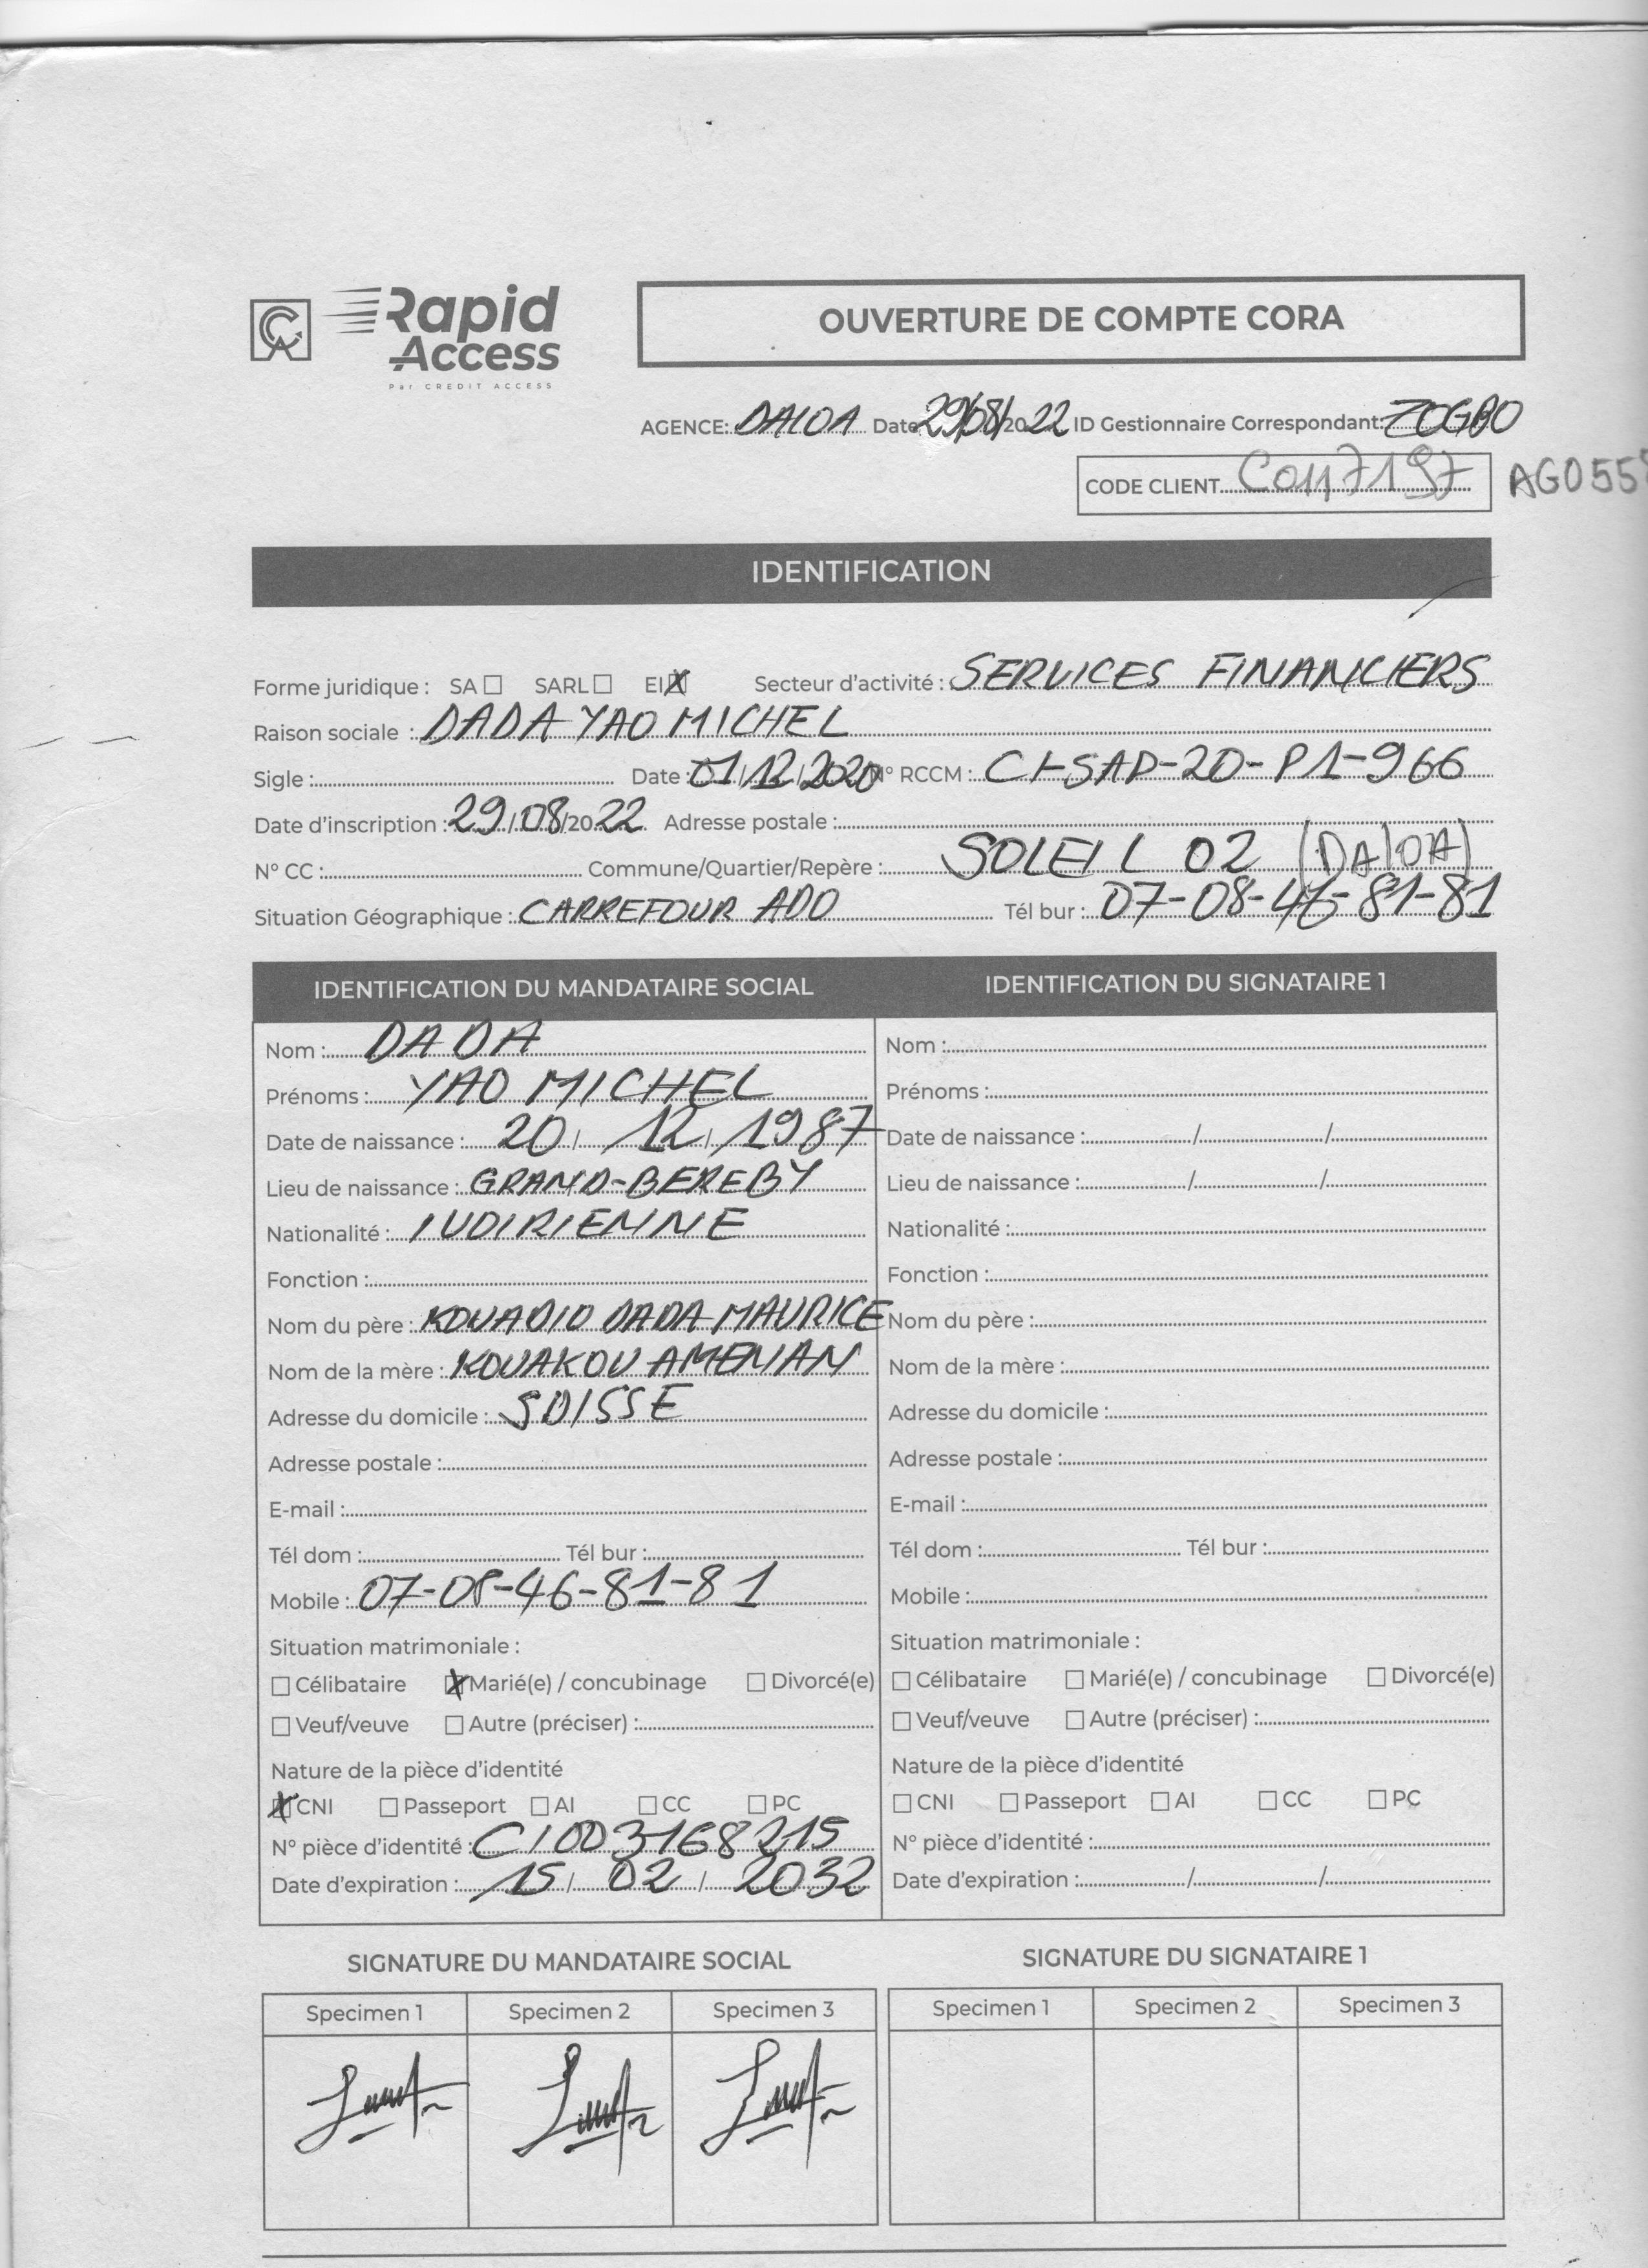 Rapid
Access
Par CREDIT ACCESS
OUVERTURE DE COMPTE CORA
AGENCE: DALOA Date 29/08/2022 ID Gestionnaire Correspondant: ZOGBO
CODE CLIENT C0117197 AG055
IDENTIFICATION
Forme juridique : SA ☐ SARL ☐ EI ☒ Secteur d'activité : SERVICES FINANCIERS
Raison sociale : DADA YAO MICHEL
Sigle : Date : 01/12/2020 N° RCCM : CI-SAD-20-P1-966
Date d'inscription : 29/08/2022 Adresse postale :
N° CC : Commune/Quartier/Repère : SOLEIL 02 (DALOA)
Situation Géographique : CARREFOUR ADO Tél bur : 07-08-46-81-81
IDENTIFICATION DU MANDATAIRE SOCIAL
Nom : DADA
Prénoms : YAO MICHEL
Date de naissance : 20/12/1987
Lieu de naissance : GRAND-BEREBY
Nationalité : IVOIRIENNE
Fonction :
Nom du père : KOUADIO DADA MAURICE
Nom de la mère : KOUAKOU AMENAN
Adresse du domicile : SOISSE
Adresse postale :
E-mail :
Tél dom : Tél bur :
Mobile : 07-08-46-81-81
Situation matrimoniale :
☐ Célibataire ☒ Marié(e) / concubinage ☐ Divorcé(e)
☐ Veuf/veuve ☐ Autre (préciser) :
Nature de la pièce d'identité
☒ CNI ☐ Passeport ☐ AI ☐ CC ☐ PC
N° pièce d'identité : CI003168215
Date d'expiration : 15/02/2032
IDENTIFICATION DU SIGNATAIRE 1
Nom :
Prénoms :
Date de naissance : / /
Lieu de naissance : / /
Nationalité :
Fonction :
Nom du père :
Nom de la mère :
Adresse du domicile :
Adresse postale :
E-mail :
Tél dom : Tél bur :
Mobile :
Situation matrimoniale :
☐ Célibataire ☐ Marié(e) / concubinage ☐ Divorcé(e)
☐ Veuf/veuve ☐ Autre (préciser) :
Nature de la pièce d'identité
☐ CNI ☐ Passeport ☐ AI ☐ CC ☐ PC
N° pièce d'identité :
Date d'expiration : / /
SIGNATURE DU MANDATAIRE SOCIAL
Specimen 1 Specimen 2 Specimen 3
SIGNATURE DU SIGNATAIRE 1
Specimen 1 Specimen 2 Specimen 3